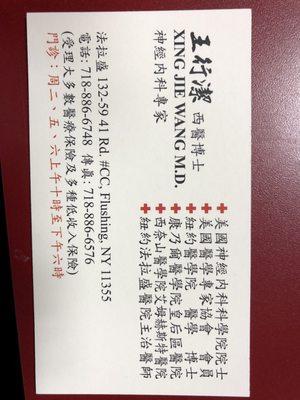 王行潔 西醫博士
XING JIE WANG M.D.
神經內科專家
✚美國神經內科科學院院士
✚美國醫學專家協會 會員
✚紐約醫學院 醫學 博士
✚康乃爾醫學院皇后區醫院
✚西奈山醫學院艾姆赫斯特醫院
✚紐約法拉盛醫院主治醫師
法拉盛 132-59 41 Rd. #CC, Flushing, NY 11355
電話: 718-886-6748 傳真: 718-886-6576
(受理大多數醫療保險及多種低收入保險)
門診：周二、五、六上午十時至下午六時